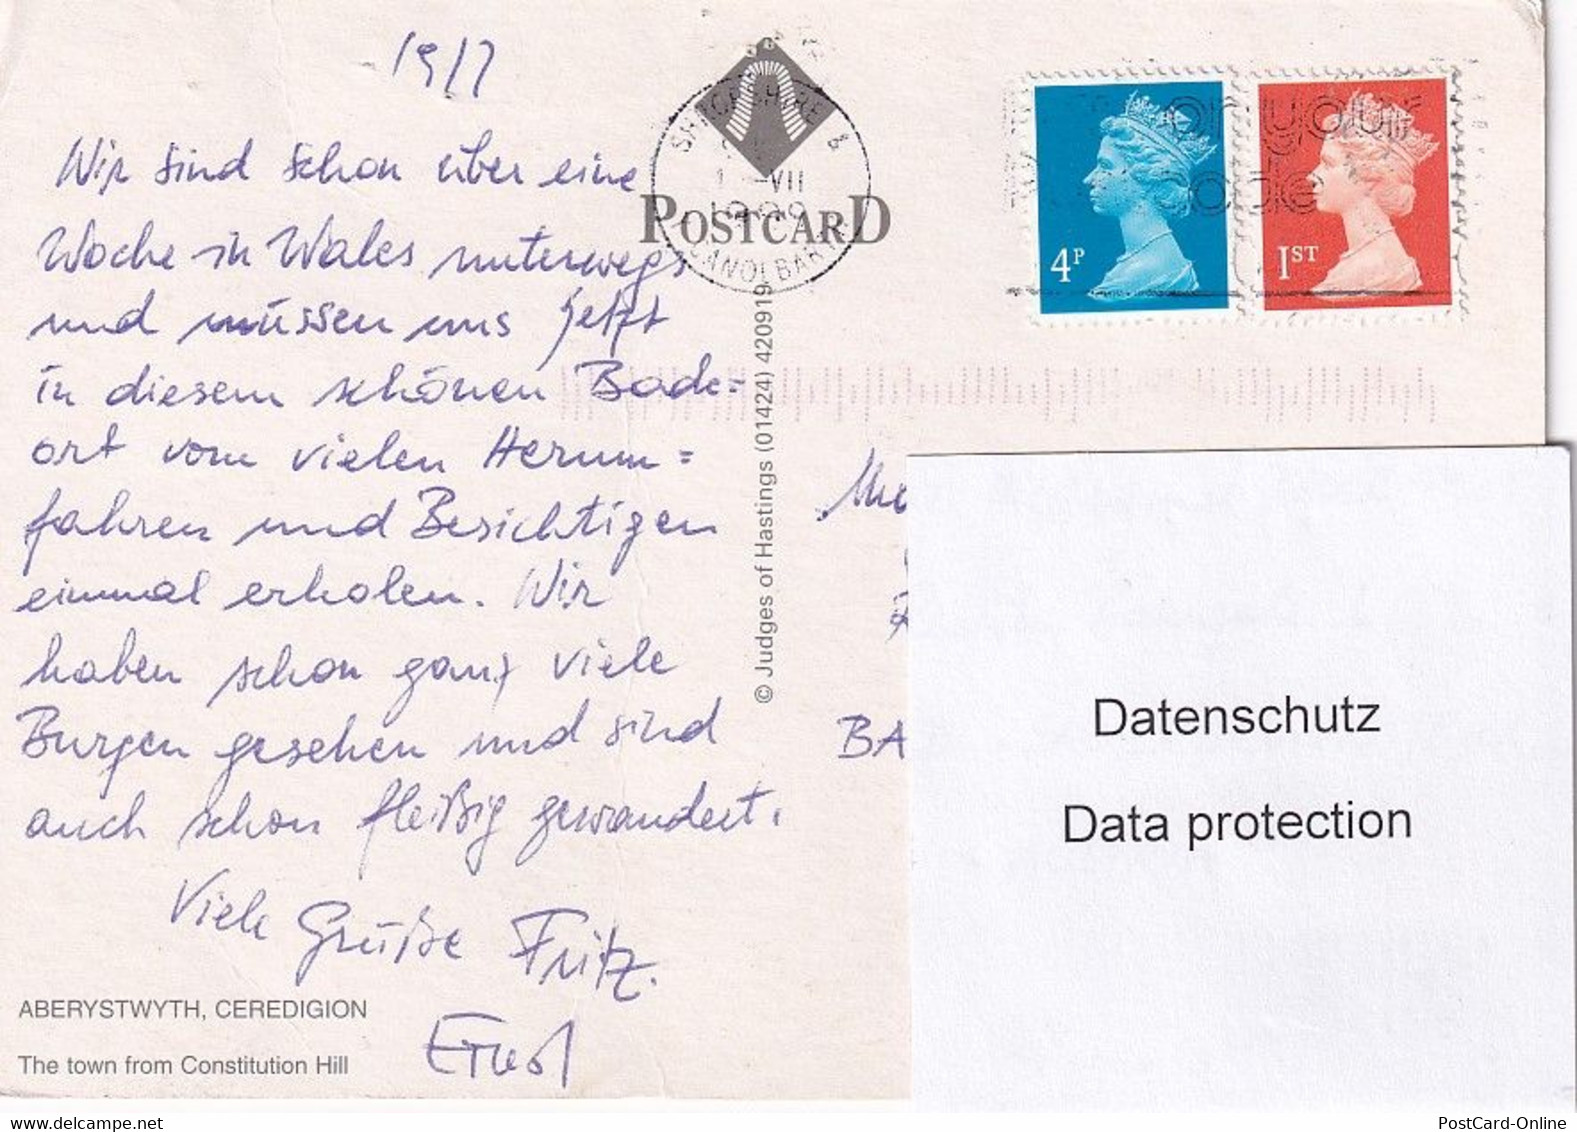 19/7
Wir sind schon über eine
Woche in Wales unterwegs
und müssen uns jetzt
in diesem schönen Bade=
ort vom vielen Herum=
fahren und Besichtigen
einmal erholen. Wir
haben schon ganz viele
Burgen gesehen und sind
auch schon fleißig gewandert.
Viele Grüße Fritz.
Ernst
ABERYSTWYTH, CEREDIGION
The town from Constitution Hill
POSTCARD
SHROPSHIRE &
VII
CANOLBARTH
© Judges of Hastings (01424) 420919
4P
1ST
your
code
BA
Datenschutz
Data protection
PostCard-Online